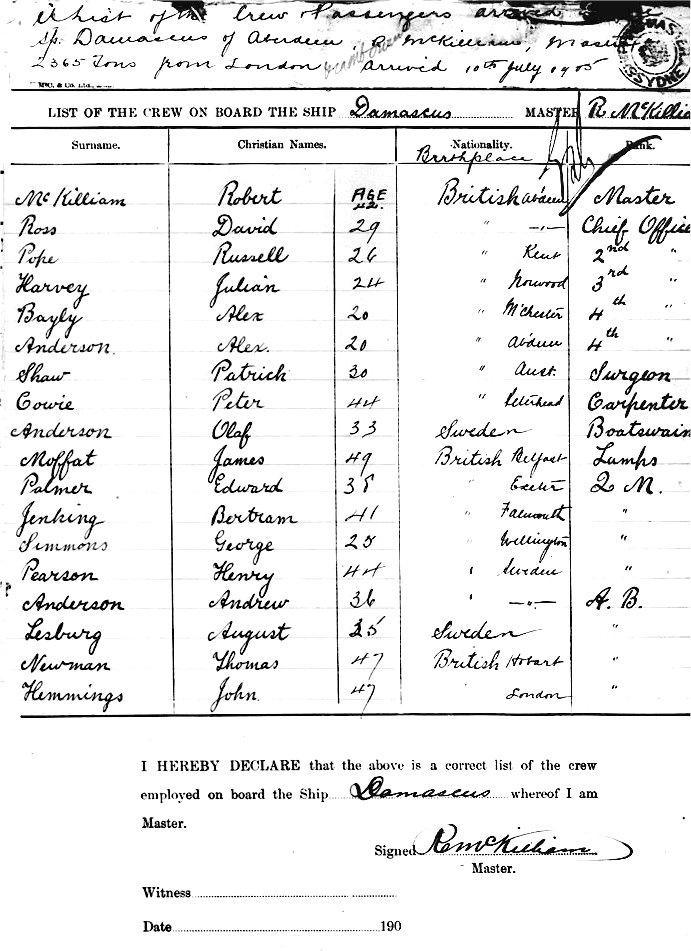 List of the Crew & Passengers arrived
Damascus of Aberdeen, R McKilliam, Master
2365 Tons from London arrived 10th July 1905
LIST OF THE CREW ON BOARD THE SHIP Damascus MASTER R McKillia
Surname. Christian Names. Nationality. Rank.
Birthplace
McKilliam Robert AGE 42. British Ab'deen Master
Ross David 29 " —"— Chief Office
Pope Russell 26 " Kent 2nd "
Harvey Julian 24 " Norwood 3rd "
Bayly Alex 20 " M'chester 4th "
Anderson. Alex. 20 " Ab'deen 4th "
Shaw Patrick 30 " Aust. Surgeon
Cowie Peter 44 " Peterhead Carpenter
Anderson Olaf 33 Sweden Boatswain
Moffat James 49 British Belfast Lamps
Palmer Edward 38 " Exeter Q M.
Jenking Bertram 41 " Falmouth "
Simmons George 25 " Wellington "
Pearson Henry 44 " Sweden "
Anderson Andrew 36 " —"— A. B.
Lesburg August 35 Sweden "
Newman Thomas 47 British Hobart "
Hemmings John. 47 " London "
I HEREBY DECLARE that the above is a correct list of the crew
employed on board the Ship Damascus whereof I am
Master.
Signed R McKilliam
Master.
Witness
Date 190